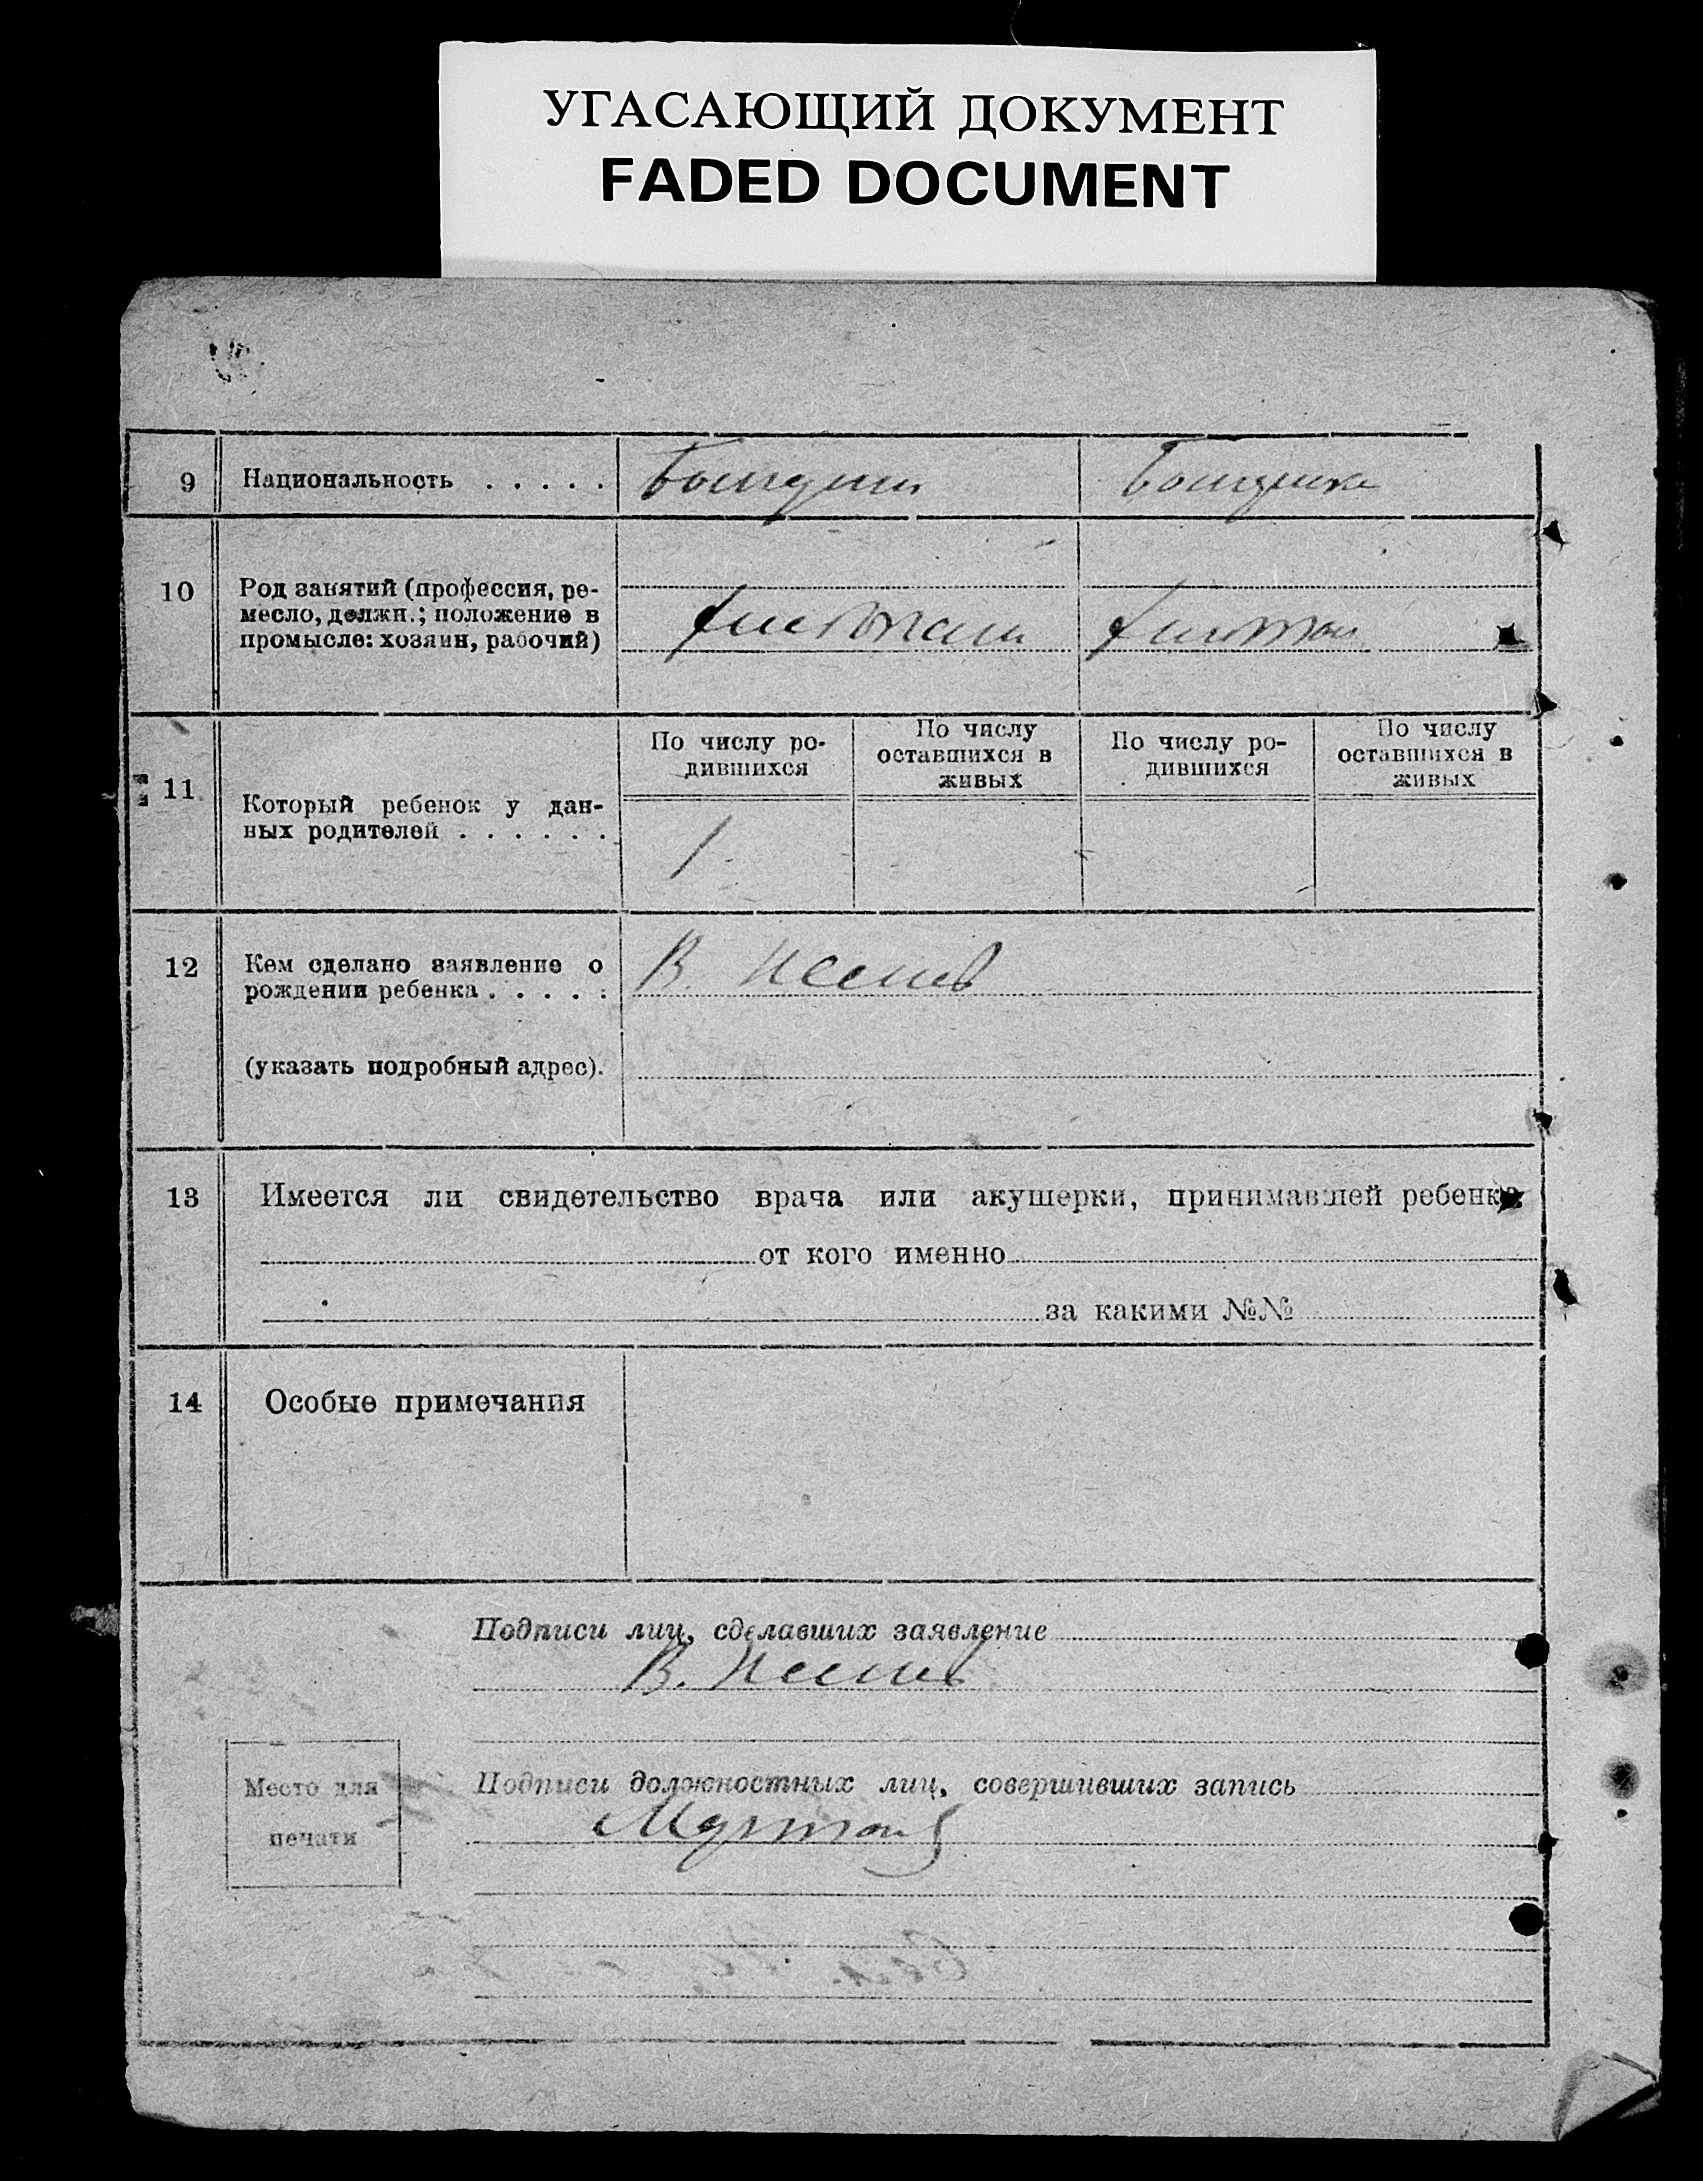 УГАСАЮЩИЙ ДОКУМЕНТ
FADED DOCUMENT
9 Национальность . . . . .
10 Род занятий (профессия, ре-
месло, должн.; положение в
промысле: хозяин, рабочий)
По числу ро-
дившихся
По числу
оставшихся в
живых
По числу ро-
дившихся
По числу
оставшихся в
живых
11 Который ребенок у дан-
ных родителей . . . . . .
1
12 Кем сделано заявление о
рождении ребенка . . . . .
(указать подробный адрес).
В.
13 Имеется ли свидетельство врача или акушерки, принимавшей ребенка
от кого именно
за какими №№
14 Особые примечания
Подписи лиц, сделавших заявление
В.
Место для
печати
Подписи должностных лиц, совершивших запись